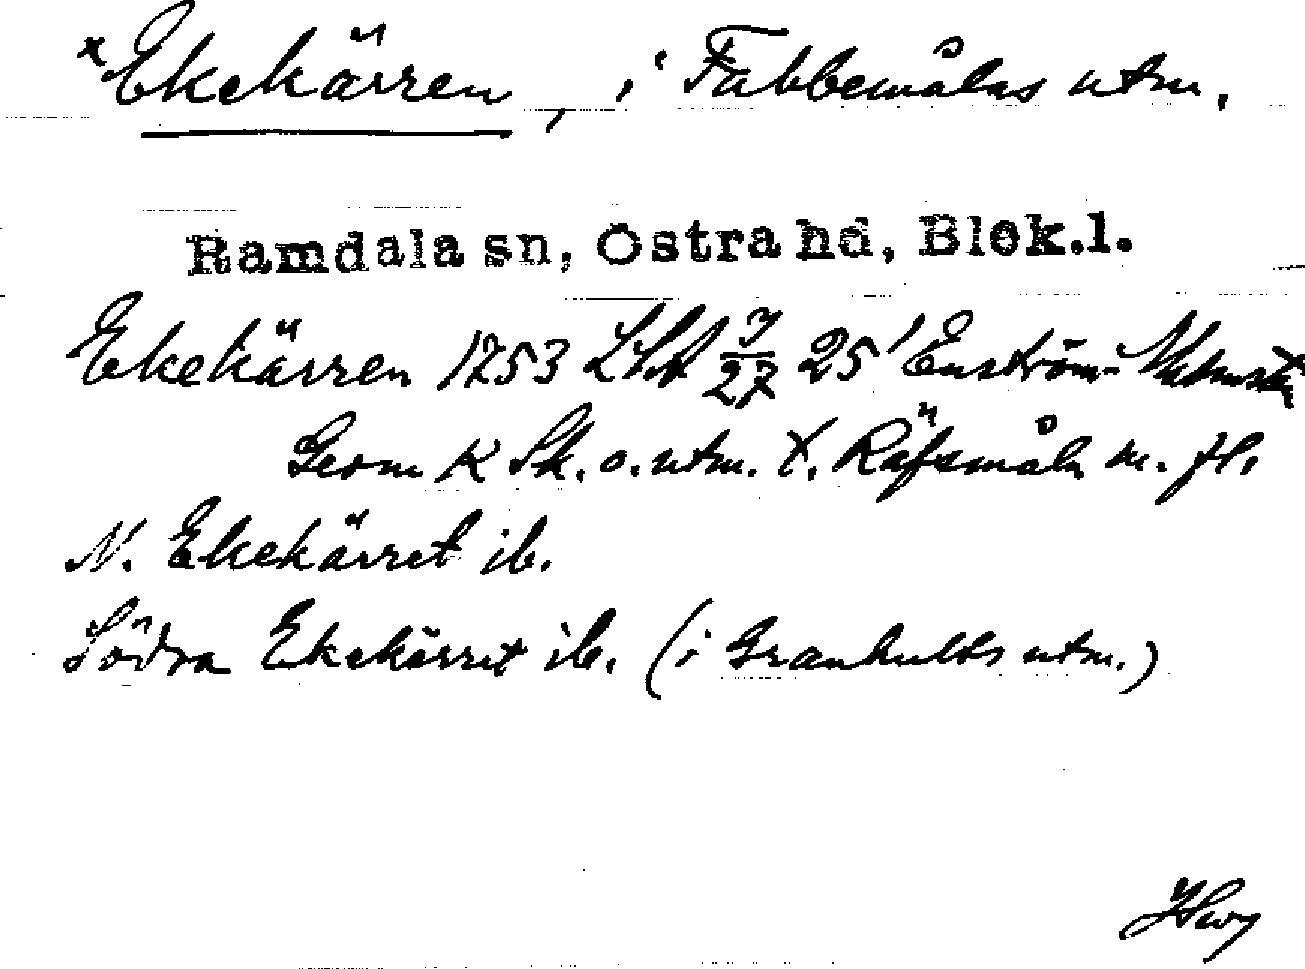 *Ekekärren, i Fabbemålas utm.
Ramdala sn, Östra hd, Blek.l.
Ekekärren 1753 LStA 7/27 25 Enström
Geom K Sk. o. utm. t. Räfsmåla m. fl.
N. Ekekärret ib.
Södra Ekekärret ib. (i Granhults utm.)